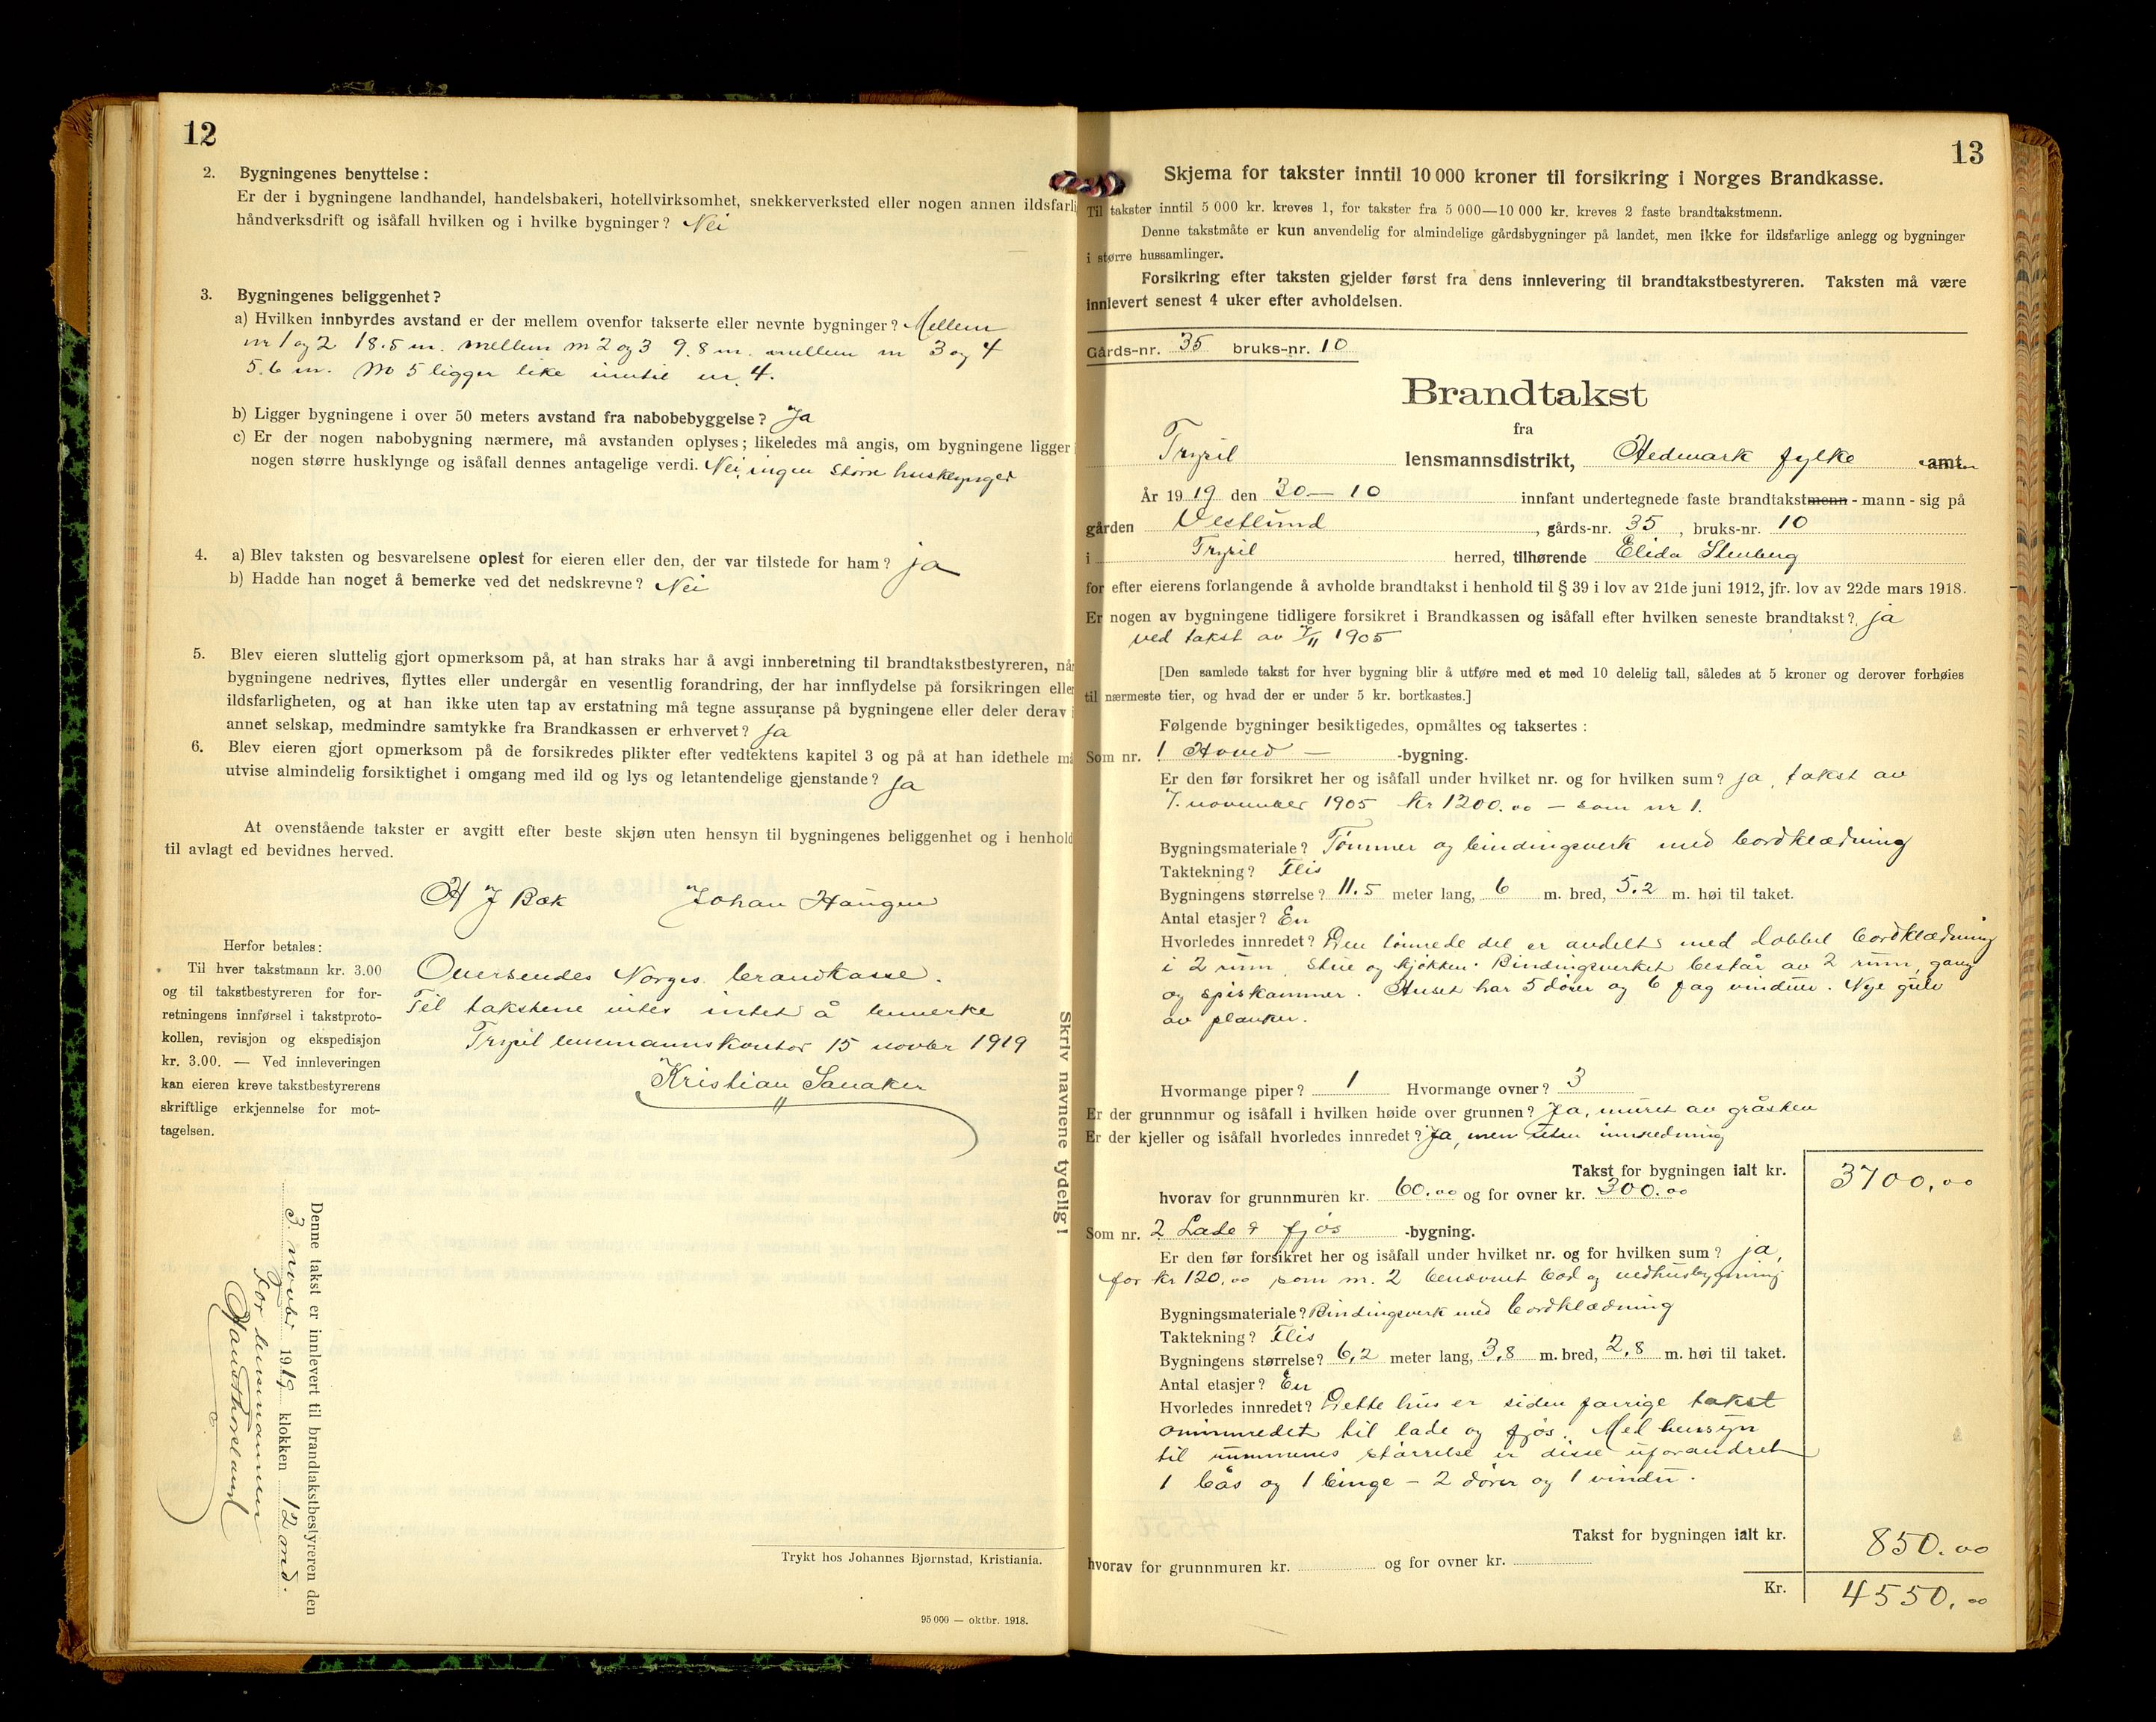 12
2. Bygningenes benyttelse:
Er der i bygningene landhandel, handelsbakeri, hotellvirksomhet, snekkerverksted eller nogen annen ildsfarli
håndverksdrift og isåfall hvilken og i hvilke bygninger? Nei
3. Bygningenes beliggenhet?
a) Hvilken innbyrdes avstand er der mellem ovenfor takserte eller nevnte bygninger? Mellem
nr 1 og 2 18.5 m. mellem nr 2 og 3 9.8 m. mellem nr 3 og 4
5.6 m. Nr 5 ligger like inntil nr. 4.
b) Ligger bygningene i over 50 meters avstand fra nabobebyggelse? Ja
c) Er der nogen nabobygning nærmere, må avstanden oplyses; likeledes må angis, om bygningene ligger i
nogen større husklynge og isåfall dennes antagelige verdi. Nei, ingen større husklynger
4. a) Blev taksten og besvarelsene oplest for eieren eller den, der var tilstede for ham? ja
b) Hadde han noget å bemerke ved det nedskrevne? Nei
5. Blev eieren sluttelig gjort opmerksom på, at han straks har å avgi innberetning til brandtakstbestyreren, når
bygningene nedrives, flyttes eller undergår en vesentlig forandring, der har innflydelse på forsikringen eller
ildsfarligheten, og at han ikke uten tap av erstatning må tegne assuranse på bygningene eller deler derav i
annet selskap, medmindre samtykke fra Brandkassen er erhvervet? Ja
6. Blev eieren gjort opmerksom på de forsikredes plikter efter vedtektens kapitel 3 og på at han idethele må
utvise almindelig forsiktighet i omgang med ild og lys og letantendelige gjenstande? Ja
At ovenstående takster er avgitt efter beste skjøn uten hensyn til bygningenes beliggenhet og i henhold
til avlagt ed bevidnes herved.
H J Bæk Johan Haugen
Herfor betales:
Til hver takstmann kr. 3.00
og til takstbestyreren for for-
retningens innførsel i takstproto-
kollen, revisjon og ekspedisjon
kr. 3.00. — Ved innleveringen
kan eieren kreve takstbestyrerens
skriftlige erkjennelse for mot-
tagelsen.
Oversendes Norges brandkasse.
Til takstene vites intet å bemerke
Trysil lensmannskontor 15 novbr 1919
Kristian Sanaker
Skriv navnene tydelig!
Denne takst er innlevert til brandtakstbestyreren den
3. novbr 1919 klokken 12 md.
For lensmannen
Trykt hos Johannes Bjørnstad, Kristiania.
95 000 — oktbr. 1918.
13
Skjema for takster inntil 10 000 kroner til forsikring i Norges Brandkasse.
Til takster inntil 5 000 kr. kreves 1, for takster fra 5 000—10 000 kr. kreves 2 faste brandtakstmenn.
Denne takstmåte er kun anvendelig for almindelige gårdsbygninger på landet, men ikke for ildsfarlige anlegg og bygninger
i større hussamlinger.
Forsikring efter taksten gjelder først fra dens innlevering til brandtakstbestyreren. Taksten må være
innlevert senest 4 uker efter avholdelsen.
Gårds-nr. 35 bruks-nr. 10
Brandtakst
fra
Trysil lensmannsdistrikt, Hedmark fylke amt.
År 1919 den 30 — 10 innfant undertegnede faste brandtakstmenn - mann - sig på
gården Vestlund, gårds-nr. 35, bruks-nr. 10
i Trysil herred, tilhørende Elida Stenberg
for efter eierens forlangende å avholde brandtakst i henhold til § 39 i lov av 21de juni 1912, jfr. lov av 22de mars 1918.
Er nogen av bygningene tidligere forsikret i Brandkassen og isåfall efter hvilken seneste brandtakst? ja
ved takst av 7/11 1905
[Den samlede takst for hver bygning blir å utføre med et med 10 delelig tall, således at 5 kroner og derover forhøies
til nærmeste tier, og hvad der er under 5 kr. bortkastes.]
Følgende bygninger besiktigedes, opmåltes og taksertes:
Som nr. 1 Hoved — -bygning.
Er den før forsikret her og isåfall under hvilket nr. og for hvilken sum? ja, takst av
7. november 1905 kr 1200.00 — som nr 1.
Bygningsmateriale? Tømmer og bindingsverk med bordklædning
Taktekning? Flis
Bygningens størrelse? 11.5 meter lang, 6 m. bred, 5.2 m. høi til taket.
Antal etasjer? En
Hvorledes innredet? Den tømrede del er avdelt med dobbel bordklædning
i 2 rum, stue og kjøkken. Bindingsverket består av 2 rum, gang
og spiskammer. Huset har 5 dører og 6 fag vinduer. Nye gulv
av planker.
Hvormange piper? 1 Hvormange ovner? 3
Er der grunnmur og isåfall i hvilken høide over grunnen? Ja, muret av gråsten
Er der kjeller og isåfall hvorledes innredet? Ja, men uten innredning
Takst for bygningen ialt kr. 3700,00
hvorav for grunnmuren kr. 60.00 og for ovner kr. 300.00
Som nr. 2 Lade & fjøs -bygning.
Er den før forsikret her og isåfall under hvilket nr. og for hvilken sum? ja,
for kr 120.00 som nr. 2 benævnt bod og vedhusbygning
Bygningsmateriale? Bindingsverk med bordklædning
Taktekning? Flis
Bygningens størrelse? 6,2 meter lang, 3,8 m. bred, 2,8 m. høi til taket.
Antal etasjer? En
Hvorledes innredet? Dette hus er siden forrige takst
ominnredet til lade og fjøs. Med hensyn
til rummenes størrelse er disse uforandret
1 bås og 1 binge — 2 dører og 1 vindu.
Takst for bygningen ialt kr. 850.00
hvorav for grunnmuren kr. og for ovner kr.
Kr. 4550.00